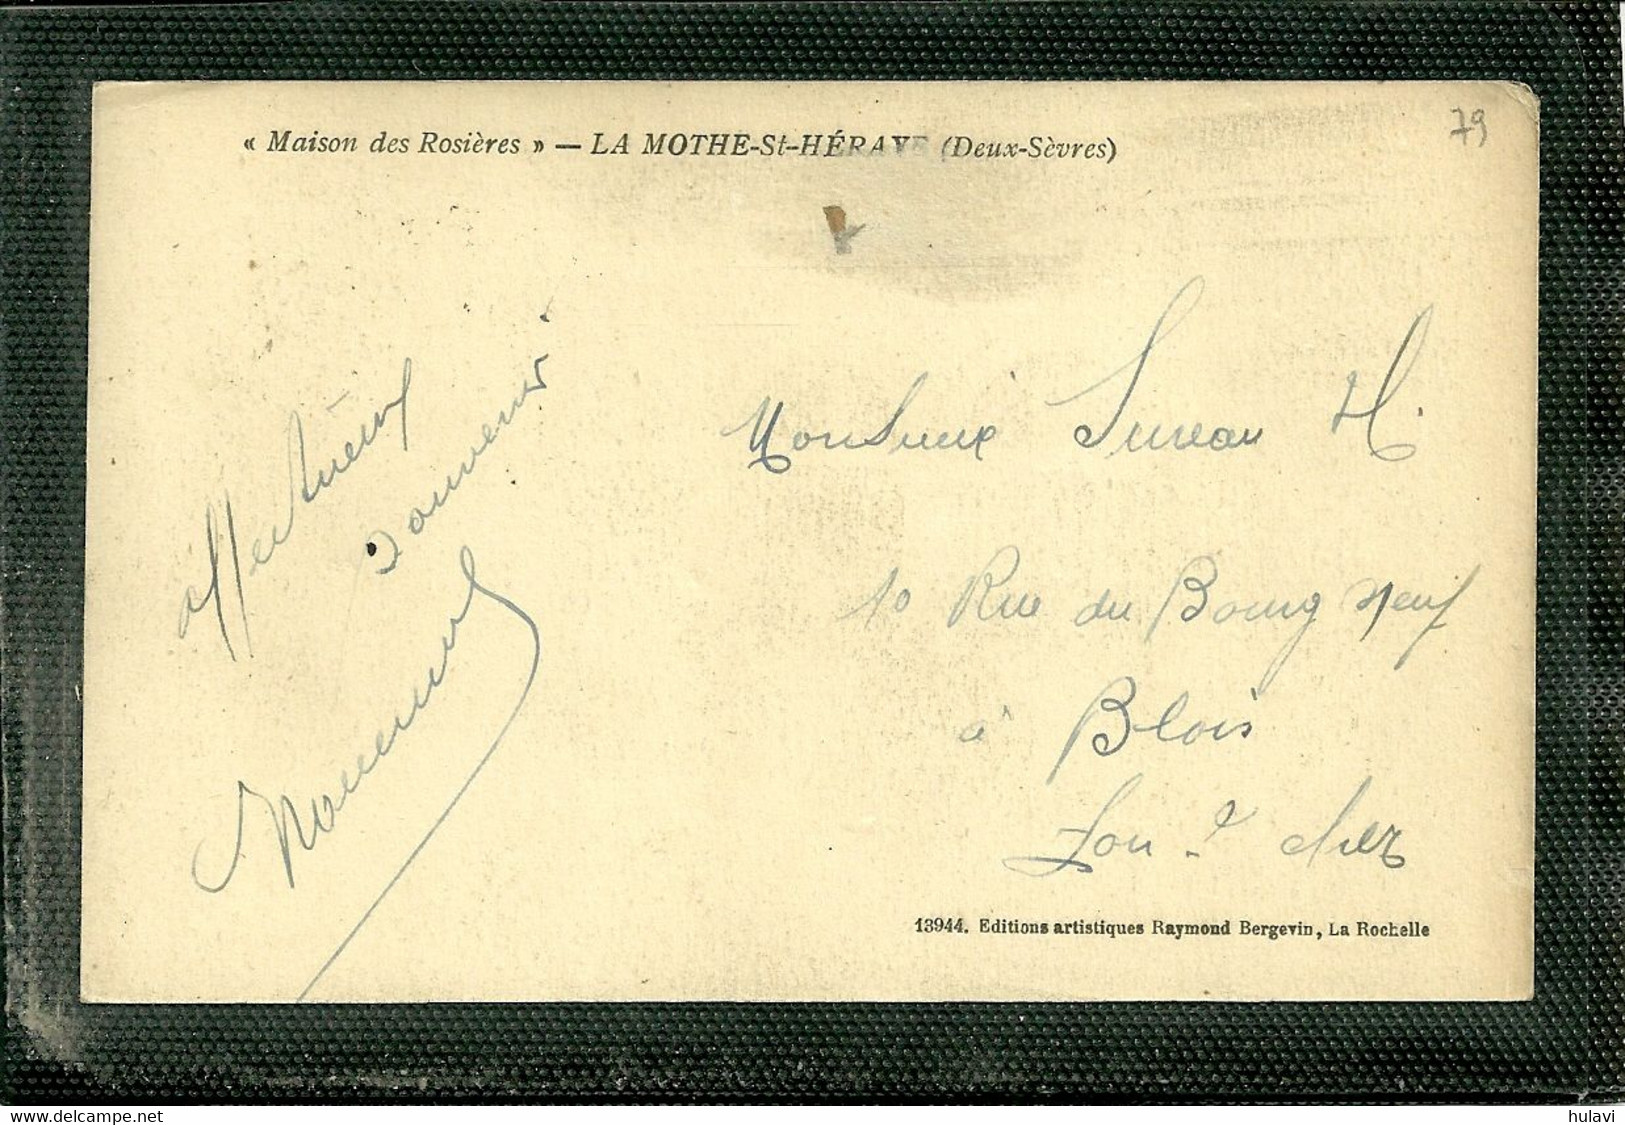 « Maison des Rosières » — LA MOTHE-St-HÉRAYE (Deux-Sèvres)
79
affectueux
souvenir
Monsieur Sureau H.
10 Rue du Bourg Neuf
à Blois
Loir-e cher
13944. Editions artistiques Raymond Bergevin, La Rochelle
www.delcampe.net
hulavi